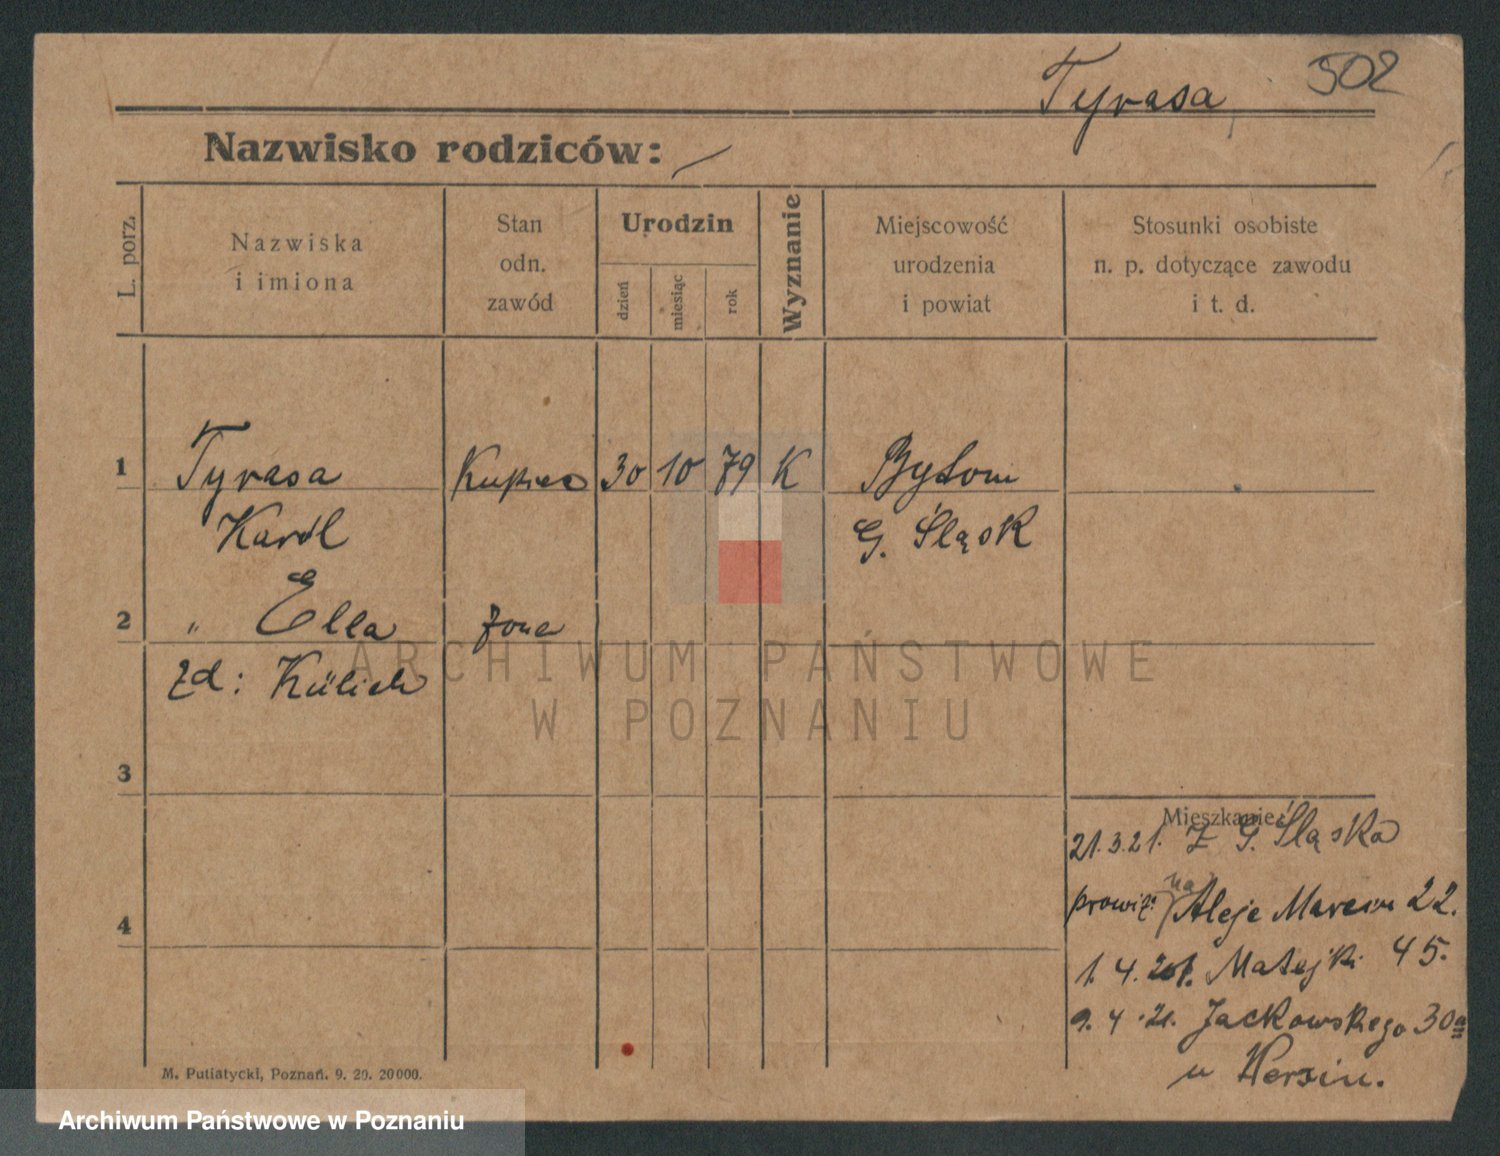 Tyrasa 502
Nazwisko rodziców: /
L. porz.
Nazwiska
i imiona
Stan
odn.
zawód
Urodzin
dzień
miesiąc
rok
Wyznanie
Miejscowość
urodzenia
i powiat
Stosunki osobiste
n. p. dotyczące zawodu
i t. d.
1 Tyrasa Kupiec 30 10 79 K Bytom
Karol G. Śląsk
2 " Ella żona
zd: Külich
ARCHIWUM PAŃSTWOWE
W POZNANIU
3
Mieszkanie:
21.3.21. z G. Śląska
prowiz: na Aleje Marcin 22.
4
1.4.21. Matejki 45.
9.4.21. Jackowskiego 30a
u Wersin.
M. Putiatycki, Poznań. 9. 20. 20000.
Archiwum Państwowe w Poznaniu